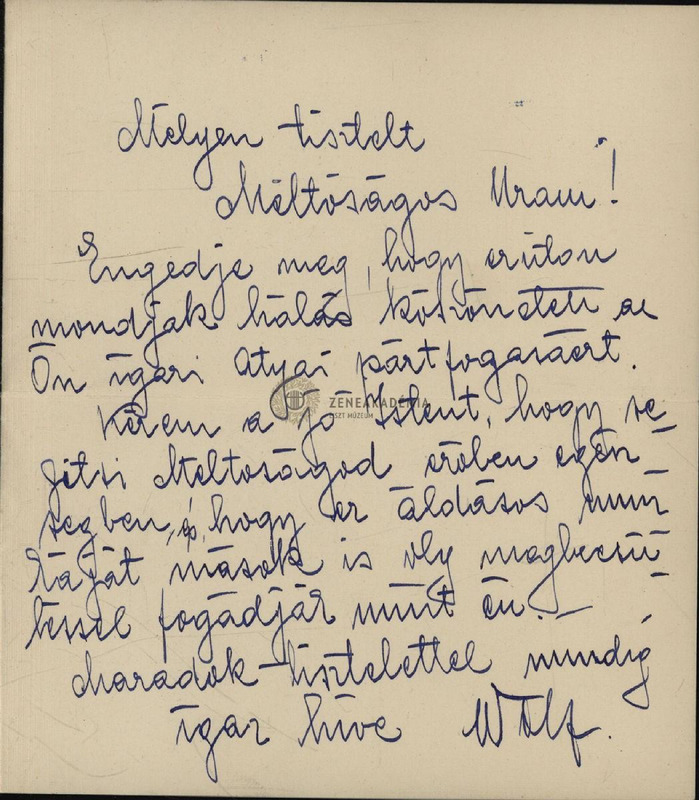 Mélyen tisztelt
Méltóságos Uram!
Engedje meg, hogy ezúton
mondjak hálás köszönetet az
Ön igazi Atyai pártfogásáért.
Kérem a jó Istent, hogy se-
gitse Méltóságod erőben egész-
ségben, és, hogy ez áldásos mun-
káját mások is oly megbecsü-
léssel fogadják mint én. —
Maradok tisztelettel mindig
igaz híve Wolf.
ZENEAKADÉMIA
LISZT MÚZEUM